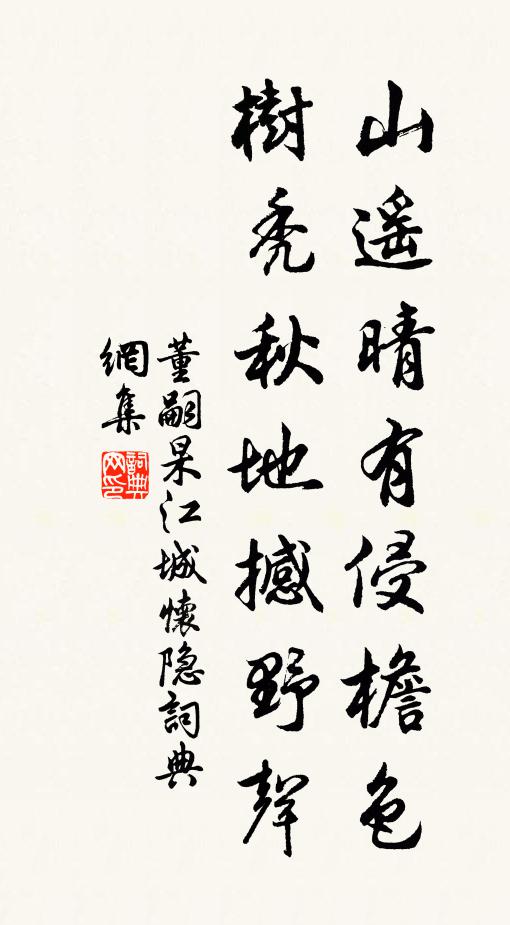 山遥晴有侵檐色
樹秃秋地撼野聲
董嗣杲江城懷隐詞典
網集
詞典网印